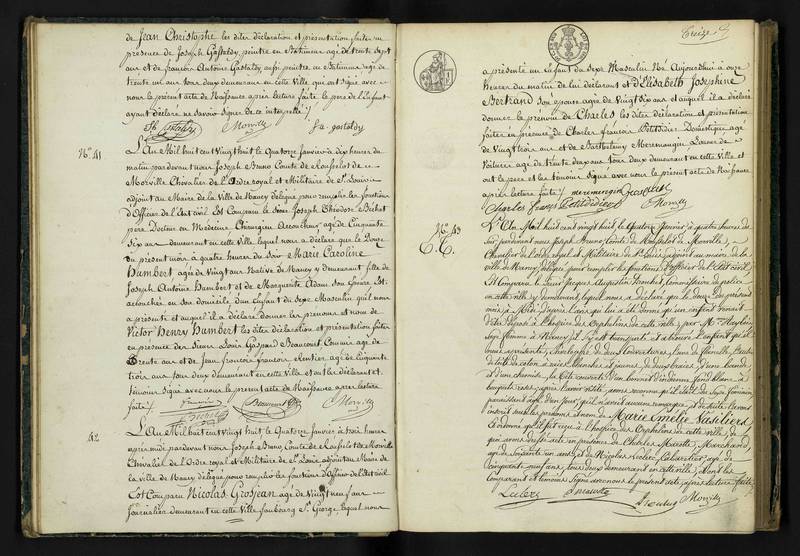 de Jean Christophe les dites déclaration et présentation faites en
presence de Joseph Gastaldy, peintre en Batiment agé de trente sept
ans et de francois Antoine Gastaldy aussi peintre en Batiment agé de
trente un ans tous deux demeurant en cette Ville, qui ont signé avec
nous le present acte de Naissance après lecture faite, le pere de l'Enfant
ayant déclaré ne savoir signer de ce interpellé /.
Morville
f. a. gastaldy
No. 41
L'An Mil huit cent Vingt huit le Quatorze Janvier à dix heures du
matin pardevant nous Joseph Bruno Comte de Ranfrelot de
Morville Chevalier de l'Ordre royal et Militaire de St. Louis
adjoint au Maire de la Ville de Nancy délégué pour remplir les fonctions
d'Officier de l'Etat civil Est Comparu le Sieur Joseph Théodore Bichet
père Docteur en Medecine Chirurgien Accoucheur agé de Cinquante
Six ans demeurant en cette Ville lequel nous a déclaré que le Douze
du présent mois à quatre heures du Soir Marie Caroline
Humbert agée de Vingt ans Native de Nancy y demeurant fille de
Joseph Antoine Humbert et de Marguerite Adam son Epouse Est
accouchée en son domicile d'un Enfant du Sexe Masculin qu'il nous
a présenté et auquel il a déclaré donner les prénoms et nom de
Victor Henry Humbert les dites déclaration et présentation faites
en presence des Sieurs Louis Gaspard Beaucourt Commis agé de
trente ans et de Jean francois rentier agé de Cinquante
trois ans tous deux demeurant en cette Ville et ont les déclarant et
témoins signé avec nous le present acte de Naissance après lecture
faite /.
Bichet
Beaucourt
Morville
42
L'An Mil huit cent Vingt huit le Quatorze Janvier à trois heures
après midi pardevant nous Joseph Bruno Comte de Ranfrelot de Morville
Chevalier de l'Ordre royal et Militaire de St. Louis adjoint au Maire de
la ville de Nancy délégué pour remplir les fonctions d'Officier de l'Etat civil
Est Comparu Nicolas Grosjean agé de Vingt neuf ans
Journalier demeurant en cette Ville faubourg St. George, lequel nous
Treize
a présenté un Enfant du Sexe Masculin Né Aujourdhui à onze
heures du matin de lui déclarant et d'Elisabeth Josephine
Bertrand Son epouse agée de Vingt Six ans et auquel il a déclaré
donner le prénom de Charles les dites déclaration et présentation
faites en présence de Charles francois Petitdidier Domestique agé
de Vingt trois ans et de Barthelemy Meremangin Loueur de
Voitures agé de trente deux ans tous deux demeurant en cette Ville et
ont le pere et les témoins Signé avec nous le présent acte de Naissance
après lecture faite /. meremengin Grosjean
Charles françs Petitdidier Morville
No. 43
L'An Mil huit cent vingt huit, le Quatorze Janvier à quatre heures du
Soir pardevant nous Joseph Bruno Comte de Ranfrelot de Morville,
Chevalier de l'ordre royal et Militaire de St. Louis, adjoint au maire de la
ville de Nancy, délégué pour remplir les fonctions d'officier de l'Etat civil,
Est Comparu le Sieur Jacques Augustin Commissaire de police
en cette ville y demeurant, lequel nous a déclaré que le douze du présent
mois à Midi d'après l'avis qui lui a été donné qu'un enfant venait
d'être déposé à l'hospice des Orphelins de cette ville, par
Sage femme à Nancy, il s'y est transporté et a trouvé l'enfant qu'il
nous a présenté, enveloppé de deux Couvertures, l'une de flanelle, l'autre
de toile de coton à raies blanches et jaunes, de deux langes, d'une bande
et d'une chemise, sa tête couverte d'un bonnet d'indienne fond blanc, à
bouquets roses, après l'avoir visité, avons reconnu qu'il était du Sexe féminin,
paraissant agé d'un jour, qu'il n'avait aucune remarque, et de suite l'avons
inscrit sous les prénoms et nom de Marie Emélie Vasiliers
et ordonné qu'il fut reçu à l'hospice des Orphelins de cette ville, de
quoi avons dressé acte en présence de Charles Marotte, Marchand,
agé de Soixante un ans, et de Nicolas Leclerc, Cabaretier, agé de
Cinquante neuf ans, tous deux demeurant en cette ville, et ont les
Comparant et témoins Signé avec nous le présent acte, après lecture faite /.
Leclerc
Morville